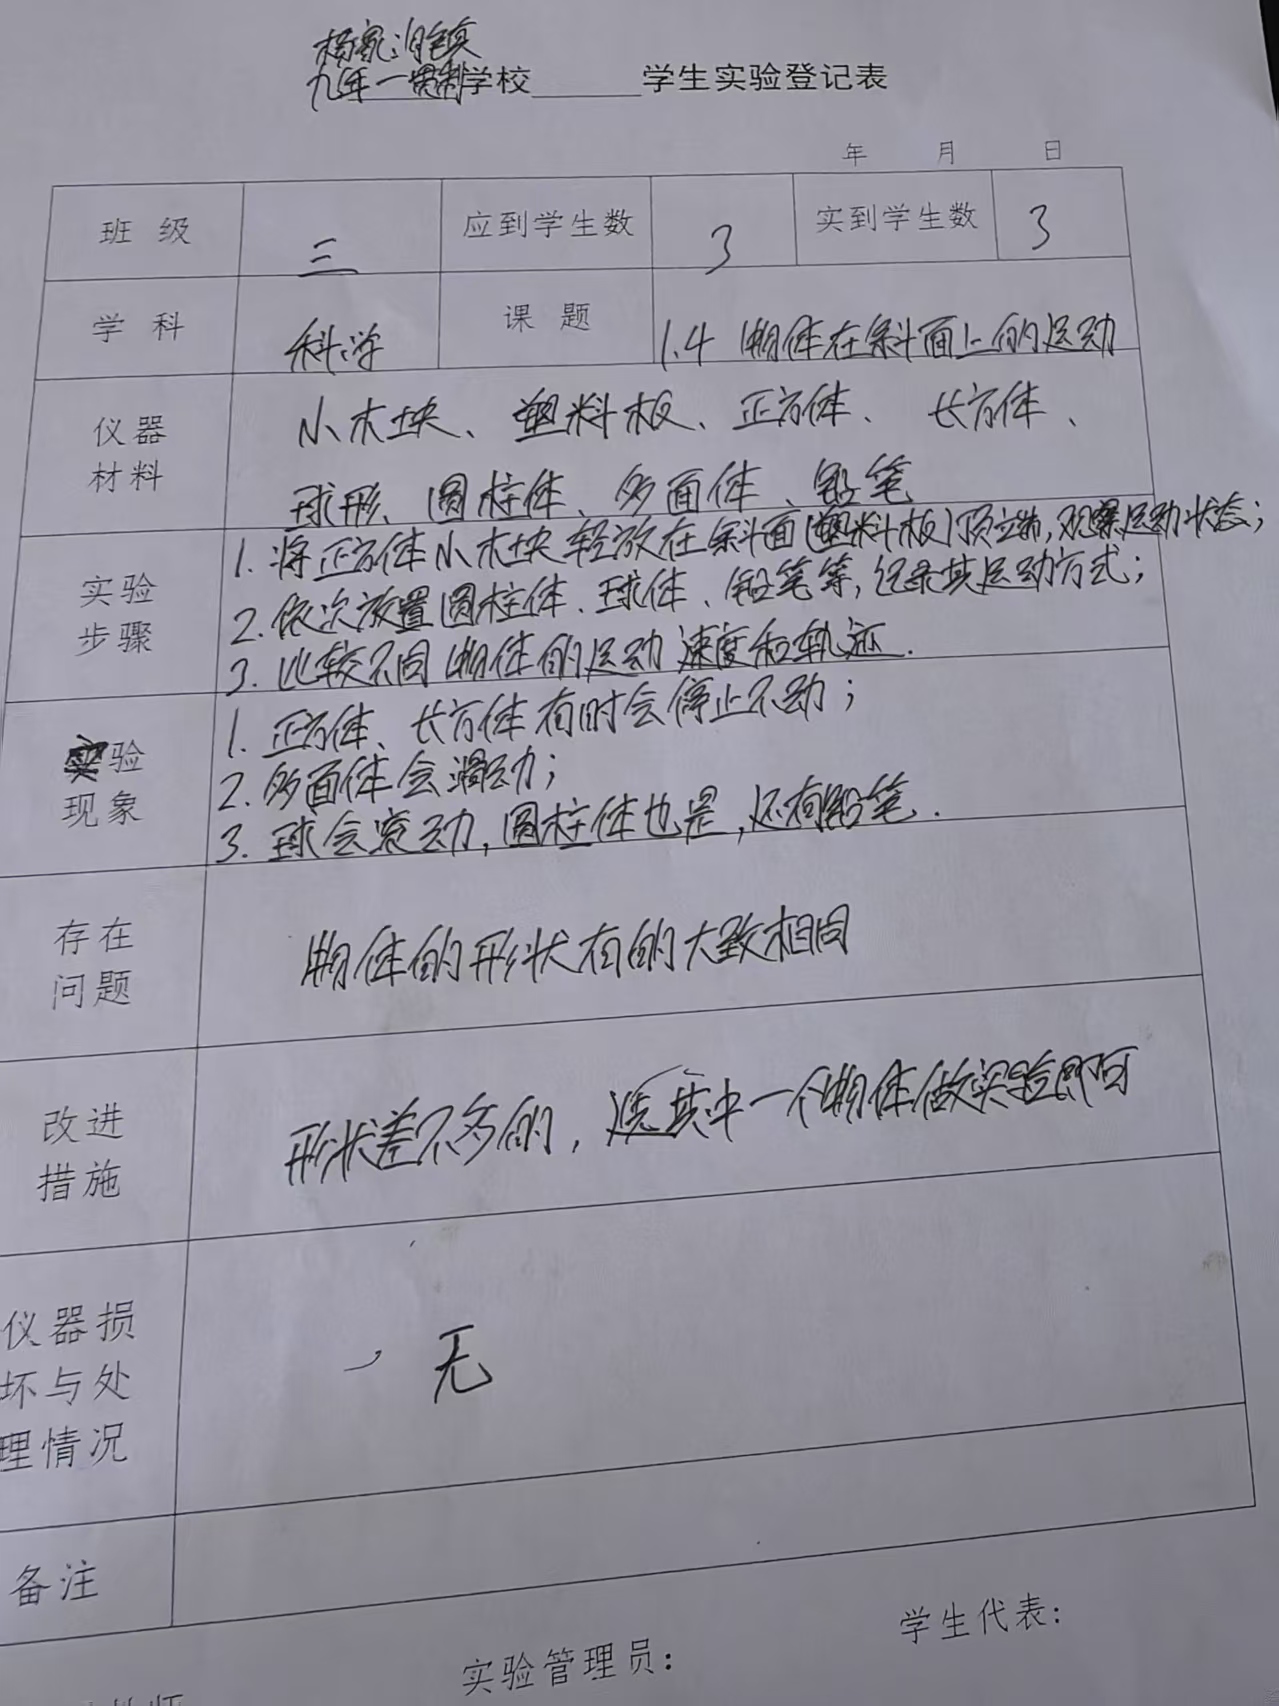 杨家泊镇
九年一贯制学校______学生实验登记表
年 月 日
班 级 三 应到学生数 3 实到学生数 3
学 科 科学 课 题 1.4 物体在斜面上的运动
仪器材料
小木块、塑料板、正方体、长方体、
球形、圆柱体、多面体、铅笔
实验步骤
1. 将正方体小木块轻放在斜面(塑料板)顶端,观察运动状态;
2. 依次放置圆柱体、球体、铅笔等,记录其运动方式;
3. 比较不同物体的运动速度和轨迹.
实验现象
1. 正方体、长方体有时会停止不动;
2. 多面体会滑动;
3. 球会滚动,圆柱体也是,还有铅笔.
存在问题
物体的形状有的大致相同
改进措施
形状差不多的,选其中一个物体做实验即可
仪器损坏与处理情况
无
备注
学生代表:
实验管理员: